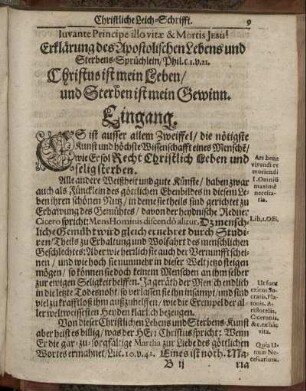 Christliche Leich-Schrifft. 9
Iuvante Principe illo vitæ & Mortis Jesu!
Erklärung des Apostolischen Lebens und
Sterbens-Sprüchlein/ Phil. c. 1. v. 21.
Christus ist mein Leben/
und Sterben ist mein Gewinn.
Eingang.
ES ist ausser allem Zweiffel/ die nötigste
Kunst und höchste Wissenschafft eines Mensche/
wie Er sol Recht Christlich Leben und
selig sterben.
Alle andre Weißheit und gute Künste/ haben zwar
auch als Füncklein des göttlichen Ebenbildes in diesem Le-
ben ihren schönen Nutz/ in deme sie theils sind gerichtet zu
Erbawung des Gemühtes/ davon der heydnische Redner
Cicero spricht: Mens Hominis discendo alitur. Dz mensch-
liche Gemüht wird gleich ernehret durch Stu-
dren/ Theils zu Erhaltung und Wolfahrt des menschlichen
Geschlechtes: Aber wie herrlich sie auch der Vernunfft schei-
nen/ und wie hoch sie nunmehr in dieser Welt gestiegen
mögen/ so können sie doch keinem Menschen an ihm selber
zur ewigen Seligkeit helffen: Ja geräth der Mensch endlich
in die letzte Todesnoht/ so verlassen sie ihn
viel zu krafftloß ihm außzuhelffen/ wie die Exempel
ler weltweisesten Heyden klar bezeugen.
Von dieser Christlichen Lebens und Sterbens-Kunst
aber heist es billig/ was der HErr Christus spricht: Wenn
Er die gar-zu-sorgfältige Martha zur Liebe des göttlichen
Wortes ermahnet/ Luc. 10. v. 42. Eines ist noth. Ma-
B ij ria
Ars bene
vivendi et
moriendi
Lib. 1. Offi.